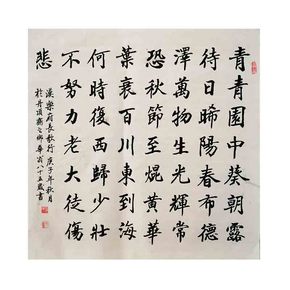 青青園中葵朝露
待日晞陽春布德
澤萬物生光輝常
恐秋節至焜黃華
葉衰百川東到海
何時復西歸少壯
不努力老大徒傷
悲
漢樂府長歌行庚子年秋月
於丹頂鶴之鄉華翁八十五歲書